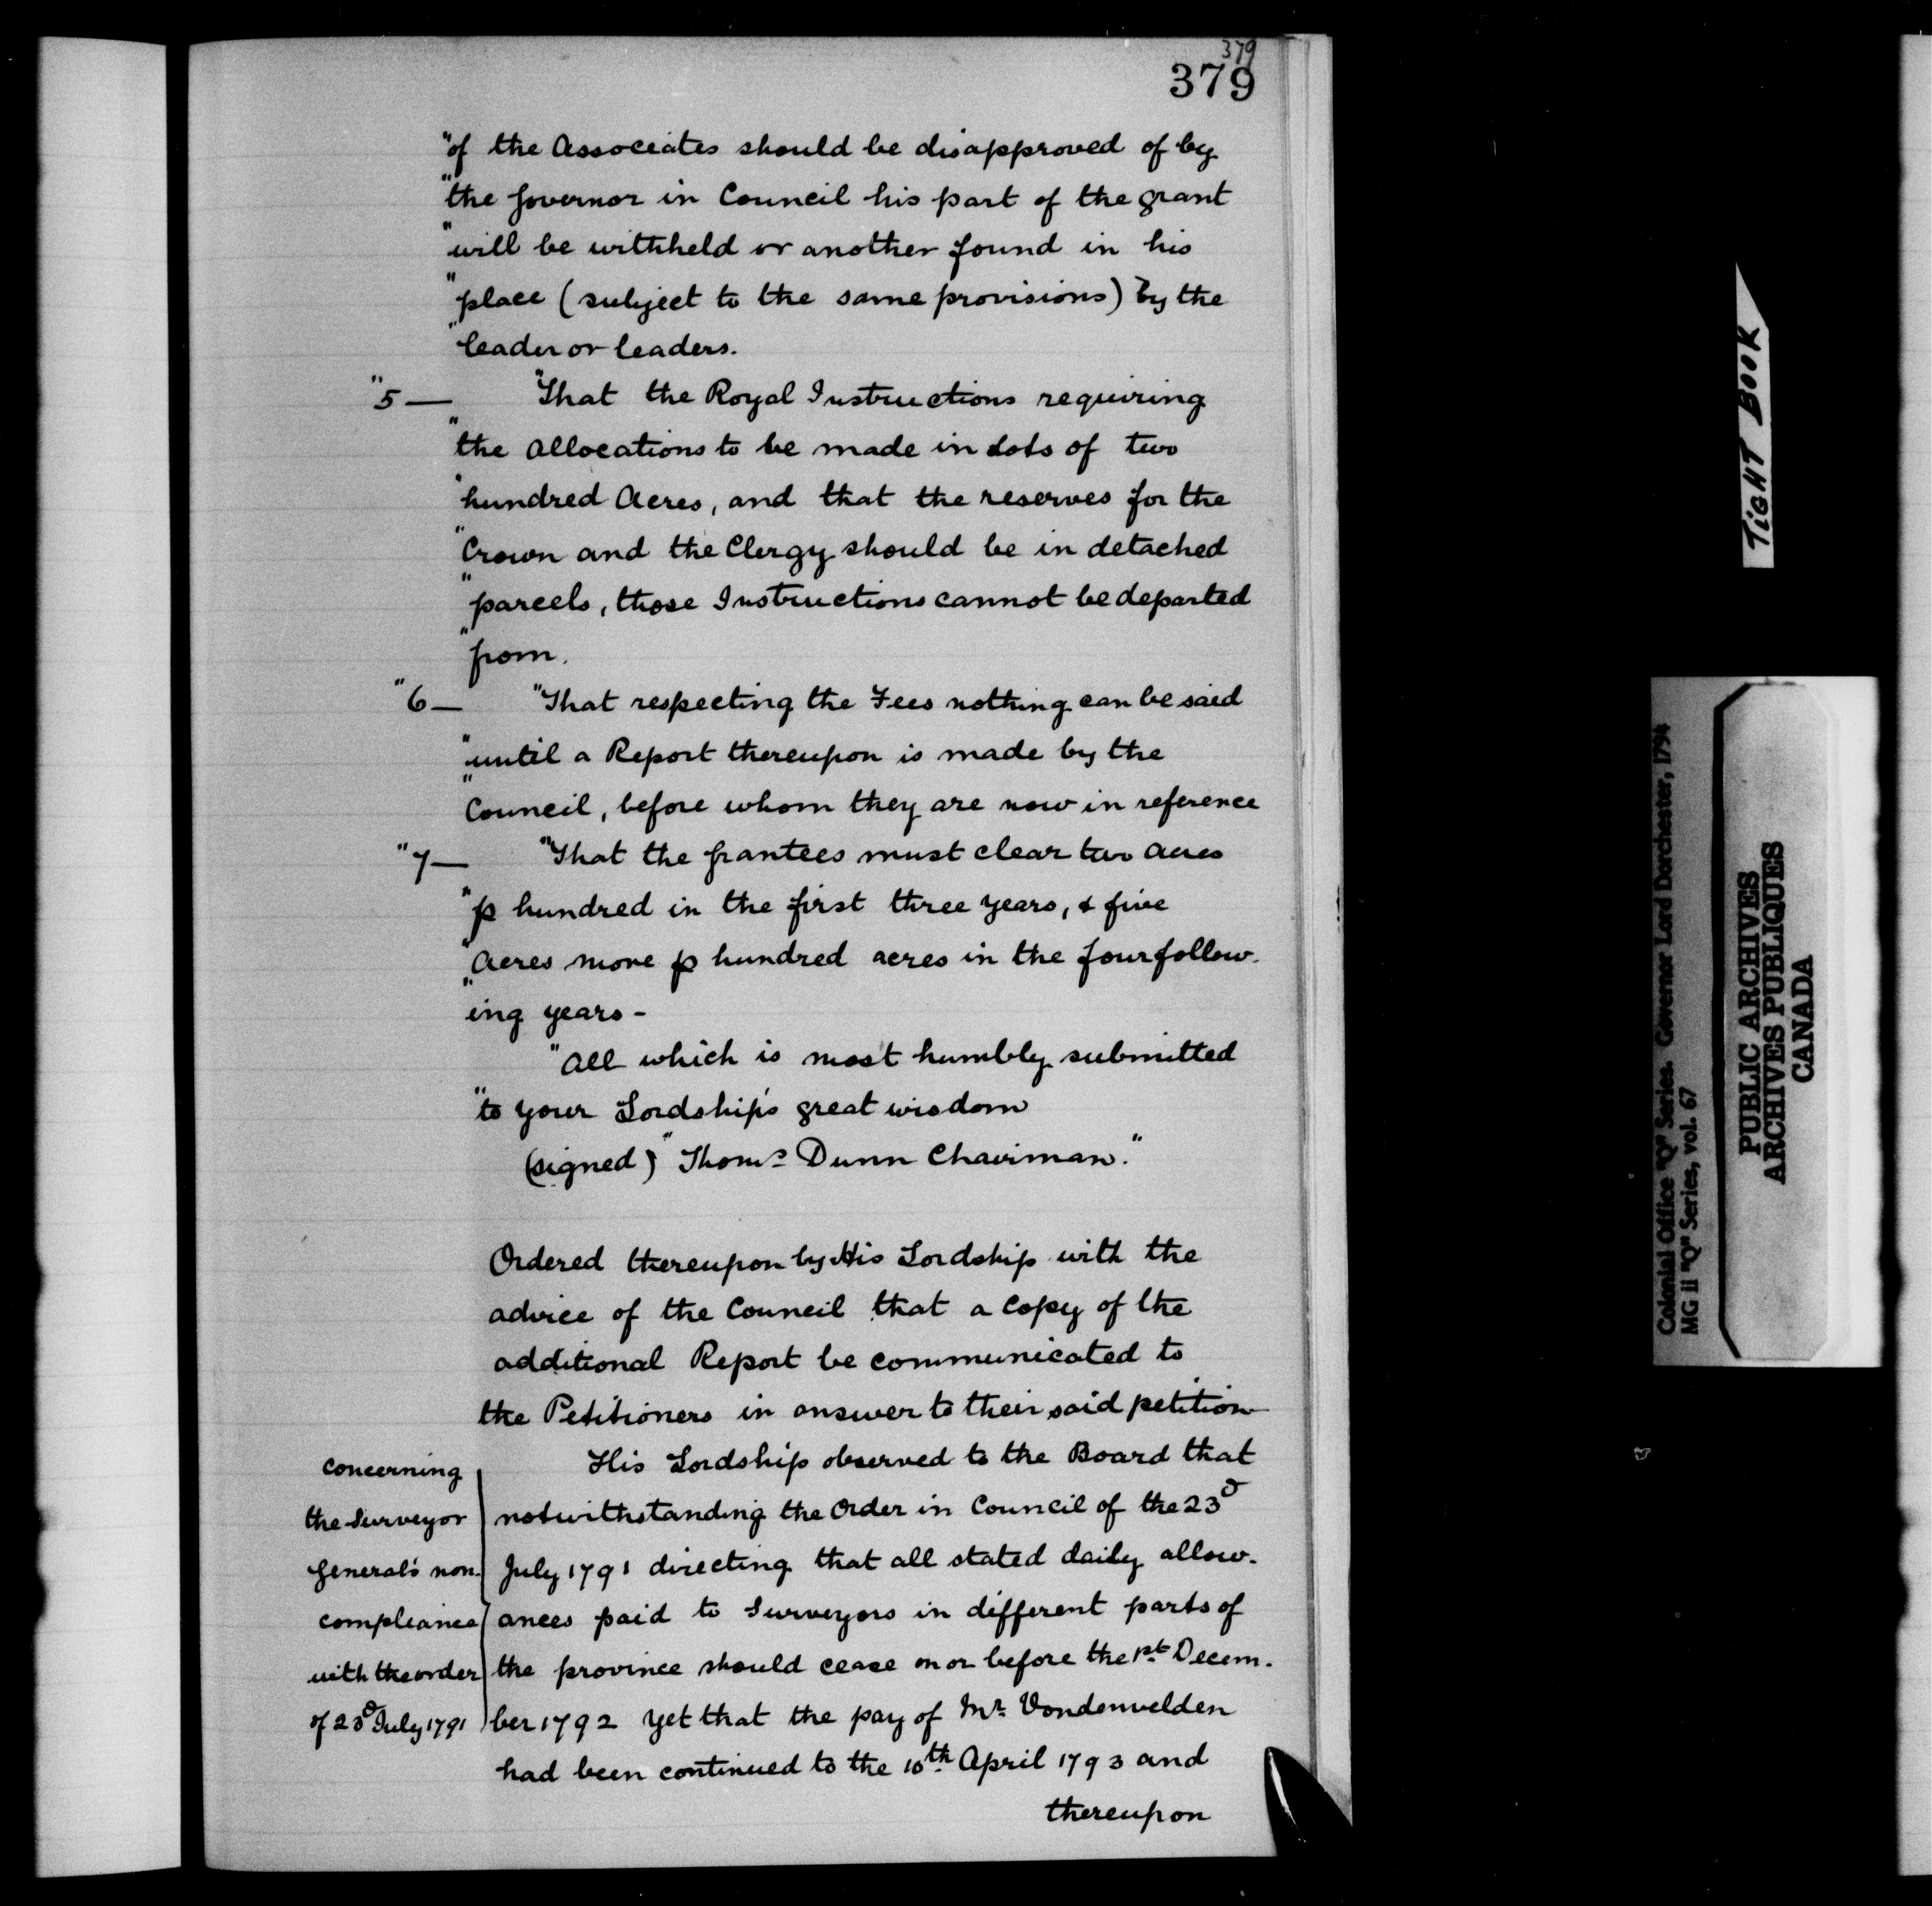 379
379
"of the Associates should be disapproved of by
"the Governor in Council his part of the grant
"will be withheld or another found in his
"place (subject to the same provisions) by the
"leader or leaders.
"5— "That the Royal Instructions requiring
"the Allocations to be made in Lots of two
"hundred Acres, and that the reserves for the
"Crown and the Clergy should be in detached
"parcels, those Instructions cannot be departed
"from.
"6— "That respecting the Fees nothing can be said
"until a Report thereupon is made by the
"Council, before whom they are now in reference
"7— "That the Grantees must clear two Acres
"p hundred in the first three years, & five
"Acres more p hundred acres in the four follow-
"ing years-
"All which is most humbly submitted
"to your Lordship's great wisdom
(signed) "Thoms Dunn Chairman."
Ordered thereupon by His Lordship with the
advice of the Council that a Copy of the
additional Report be communicated to
the Petitioners in answer to their said petition
concerning
the Surveyor
General's non-
compliance
with the order
of 23d July 1791
His Lordship observed to the Board that
notwithstanding the Order in Council of the 23d
July 1791 directing that all stated daily allow-
ances paid to Surveyors in different parts of
the province should cease on or before the 1st Decem-
ber 1792 yet that the pay of Mr Vondenvelden
had been continued to the 10th April 1793 and
thereupon
TIGHT BOOK
Colonial Office "Q" Series. Governor Lord Dorchester, 1794
MG 11 "Q" Series, vol. 67
PUBLIC ARCHIVES
ARCHIVES PUBLIQUES
CANADA